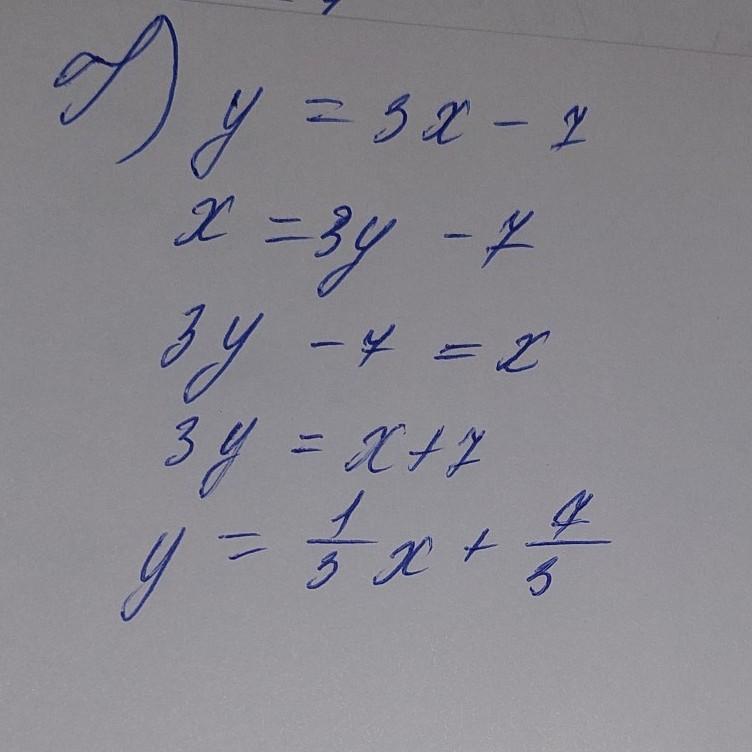 y = 3x - 7
x = 3y - 7
3y - 7 = x
3y = x + 7
y = 1/3 x + 7/3